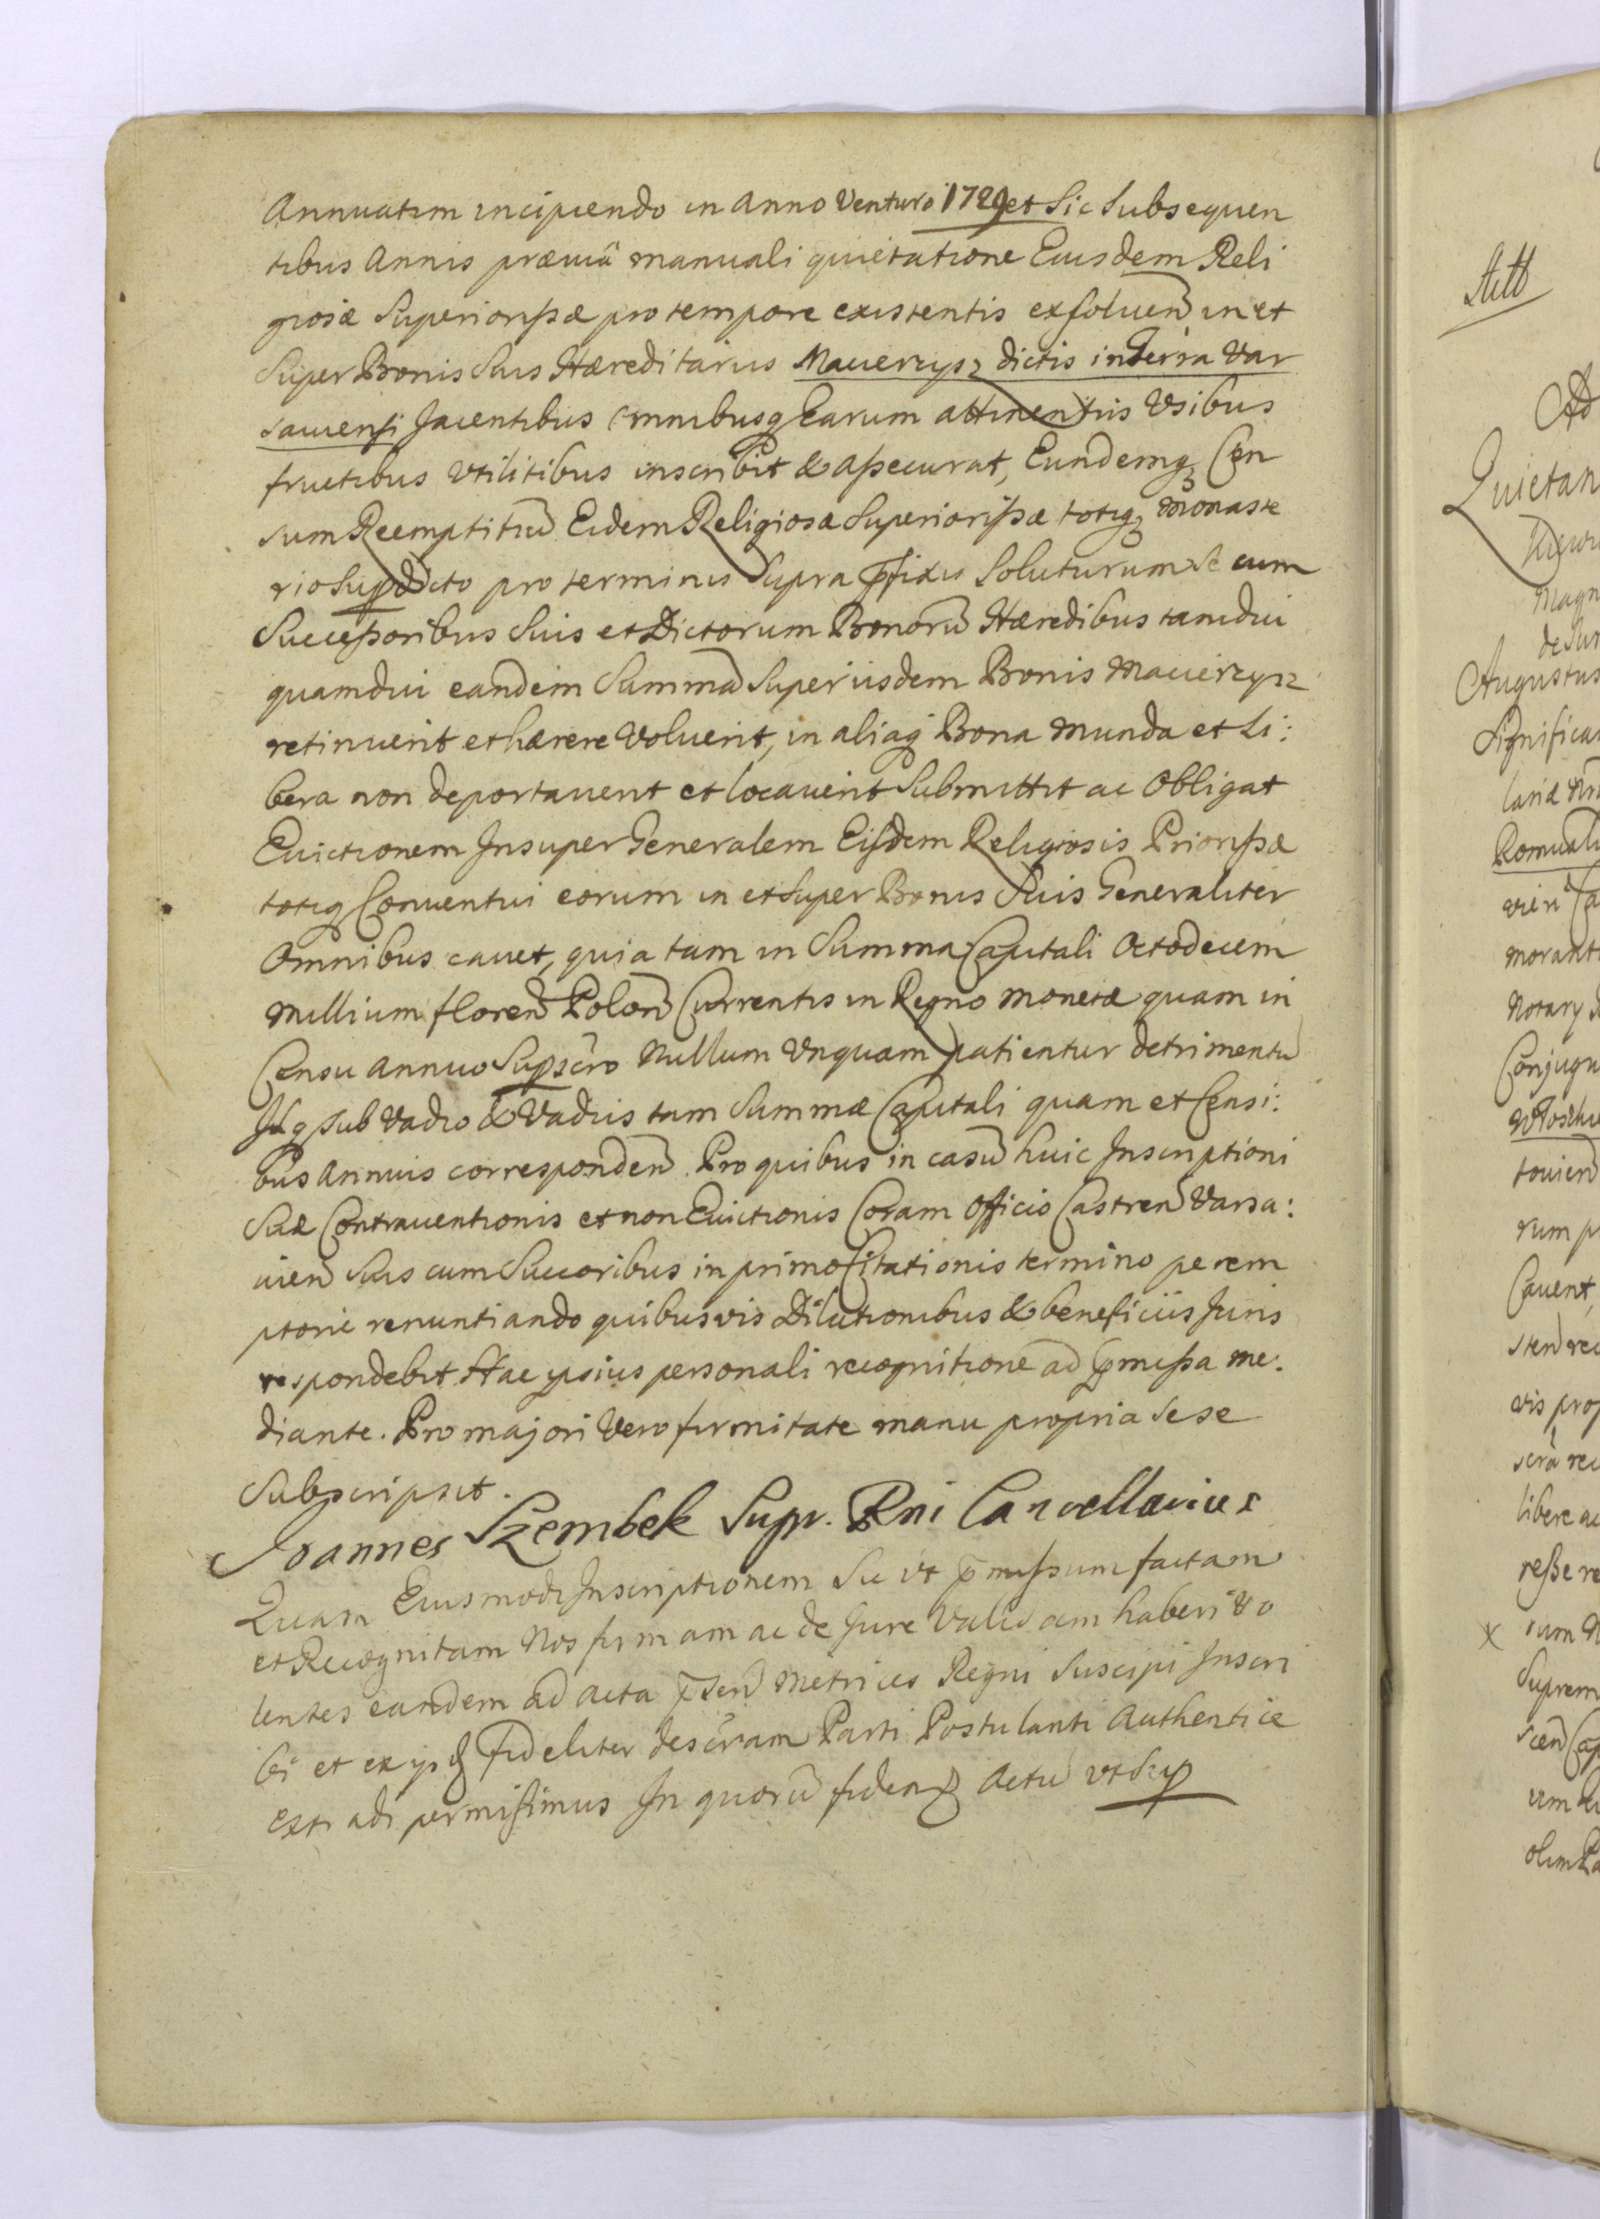 Annuatim incipiendo in Anno Venturo 1729 et Sic Subsequen
tibus Annis præviâ manuali quietatione Eiusdem Reli
giosæ Superiorißæ pro tempore existentis exsoluen̄ in et
Super Bonis Suis Hæreditariis Maciercysz dictis in Terra Var
saviensi Jacentibus Omnibusq Earum attinentiis Usibus
fructibus Utilitibus inscribit & aßecurat, Eundemq Cen
sum Reemptitiū Eidem Religiosæ Superiorißæ totiq Monaste
rio Supradicto pro terminis Supra p̄fixis Soluturum se cum
Sucessoribus Suis et Dictorum Bonorū Hæredibus tamdiu
quamdiu eandem Summā Super iisdem Bonis Maciercysz
retinuerit et hærere Voluerit, in aliaq Bona munda et Li:
bera non deportaverit et locaverit Submittit ac Obligat
Evictionem Insuper Generalem Eisdem Religiosis Priorißæ
totiq Conventui eorum in et Super Bonis Suis Generaliter
Omnibus cavet, quia tam in Summa Capitali Octodecem
Millium floren̄ Polon̄ Currentis in Regno Monetæ quam in
Censu Annuo Suprascr̄o Nullum Unquam patientur detrimentū
Idq sub Vadio & Vadiis tam Summæ Capitali quam et Censi:
bus Annuis corresponden̄. Pro quibus in casū huic Inscriptioni
Suæ Contraventionis et non Evictionis Coram Officio Castren̄ Varsa:
vien̄ Suis cum Succoribus in primo Citationis termino perem
ptorie renuntiando quibusvis Dilationibus & beneficiis Juris
respondebit Hac ipsius personali recognitione ad p̄mißa me:
diante. Pro majori Vero firmitate manu propria Sese
Subscripsit.
Joannes Szembek Supr. Rni Cancellarius
Quam Eiusmodi Inscriptionem Sic ut p̄mißum factam
et Recognitam Nos firmam ac de Jure Validam haberi Vo
lentes eandem ad Acta p̄sen̄ Metrices Regni Suscipi Inscri
bi et ex ips fideliter descr̄am Parti Postulanti Authentice
extradi permisimus In quorū fidem Actū ut Sup
Actt
Ad
Quietan
Magn
de Sur
Augustus
Significa
Romuald
morant
Notary
Conjug
rum p
Cavent,
libere ac
reße re
x rum N
Suprem